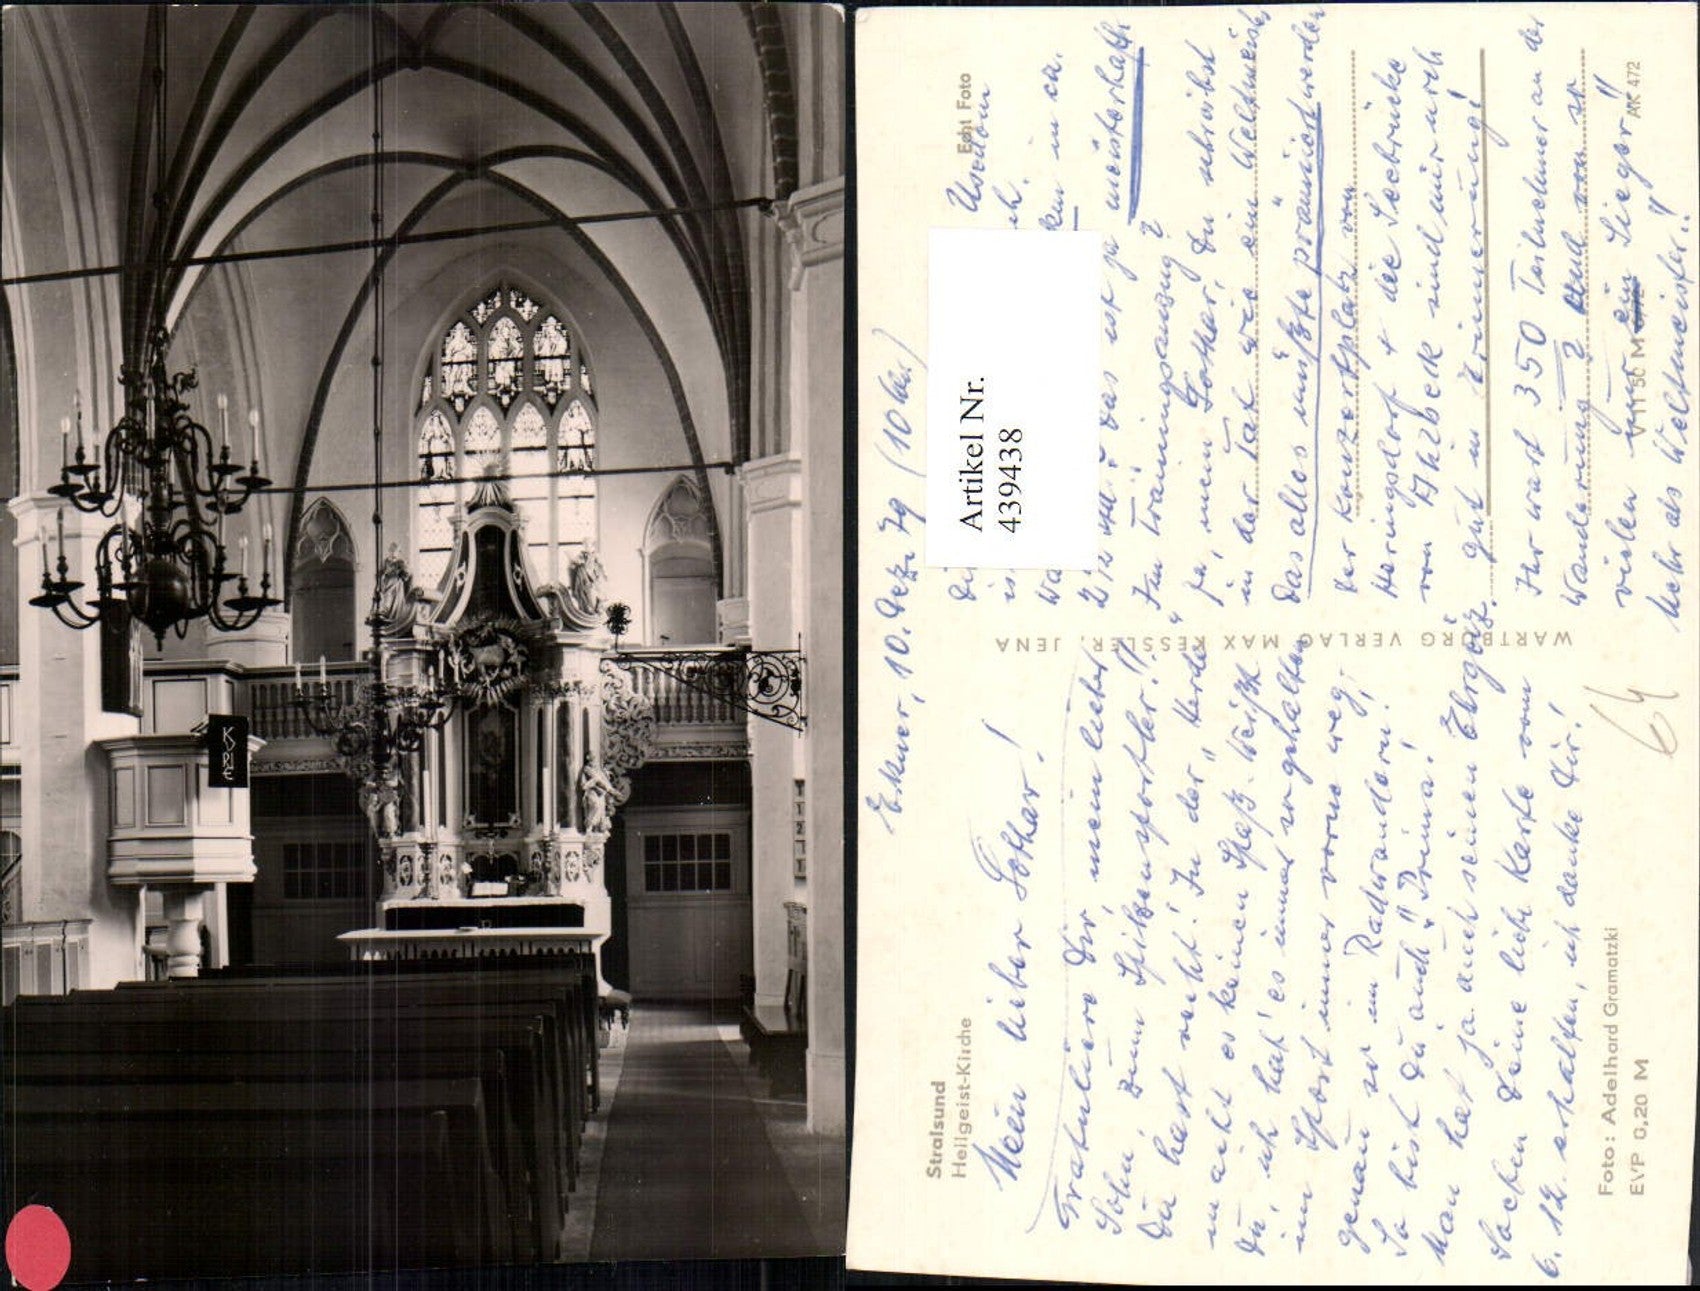 KYRIE
Stralsund
Heilgeist-Kirche
Echt Foto
Erkner, 10. Dez. 79 (10 Uhr)
Mein lieber Lothar!
Gratuliere Dir, mein lieber
Sohn zum Spitzensportler!!
Du hast recht! In der „Herde"
macht es keinen Spaß. Weißt
Du, ich hab' es immer so gehalten
im Sport immer vorne weg,
genau so im Radwandern!
So bist Du auch! „Prima!
Man hat ja auch seinen Ehrgeiz.
Soeben Deine liebe Karte vom
6. 12. erhalten, ich danke Dir!
Foto: Adelhard Gramatzki
EVP 0,20 M
WARTBURG VERLAG MAX KESSLER, JENA
Artikel Nr.
439438
Usedom
in ca.
2½ Std.? Das ist ja meisterhaft
Im Trainingsanzug?
Ja, mein Lothar, Du schreibst
in der Tat wie ein Weltmeister
Das alles müßte prämiiert werden
Der Konzertplatz von
Heringsdorf + die Seebrücke
von Ahlbeck sind mir noch
gut in Erinnerung!
Ihr wart 350 Teilnehmer an der
Wanderung? Und von so
vielen nur ein Sieger"
Mehr als Weltmeister!!
V 11 50 M
AK 472
64